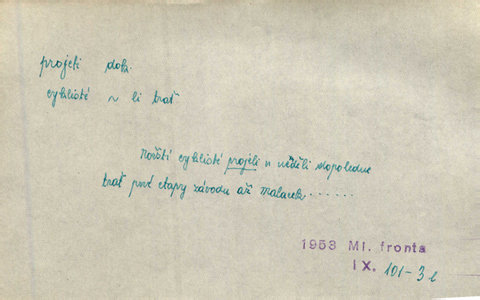 projeti dok.
cyklisté ~ li trať
Norští cyklisté projeli v neděli dopoledne
trať prvé etapy závodu až Malacek......
1953 Ml. fronta
IX. 101-3